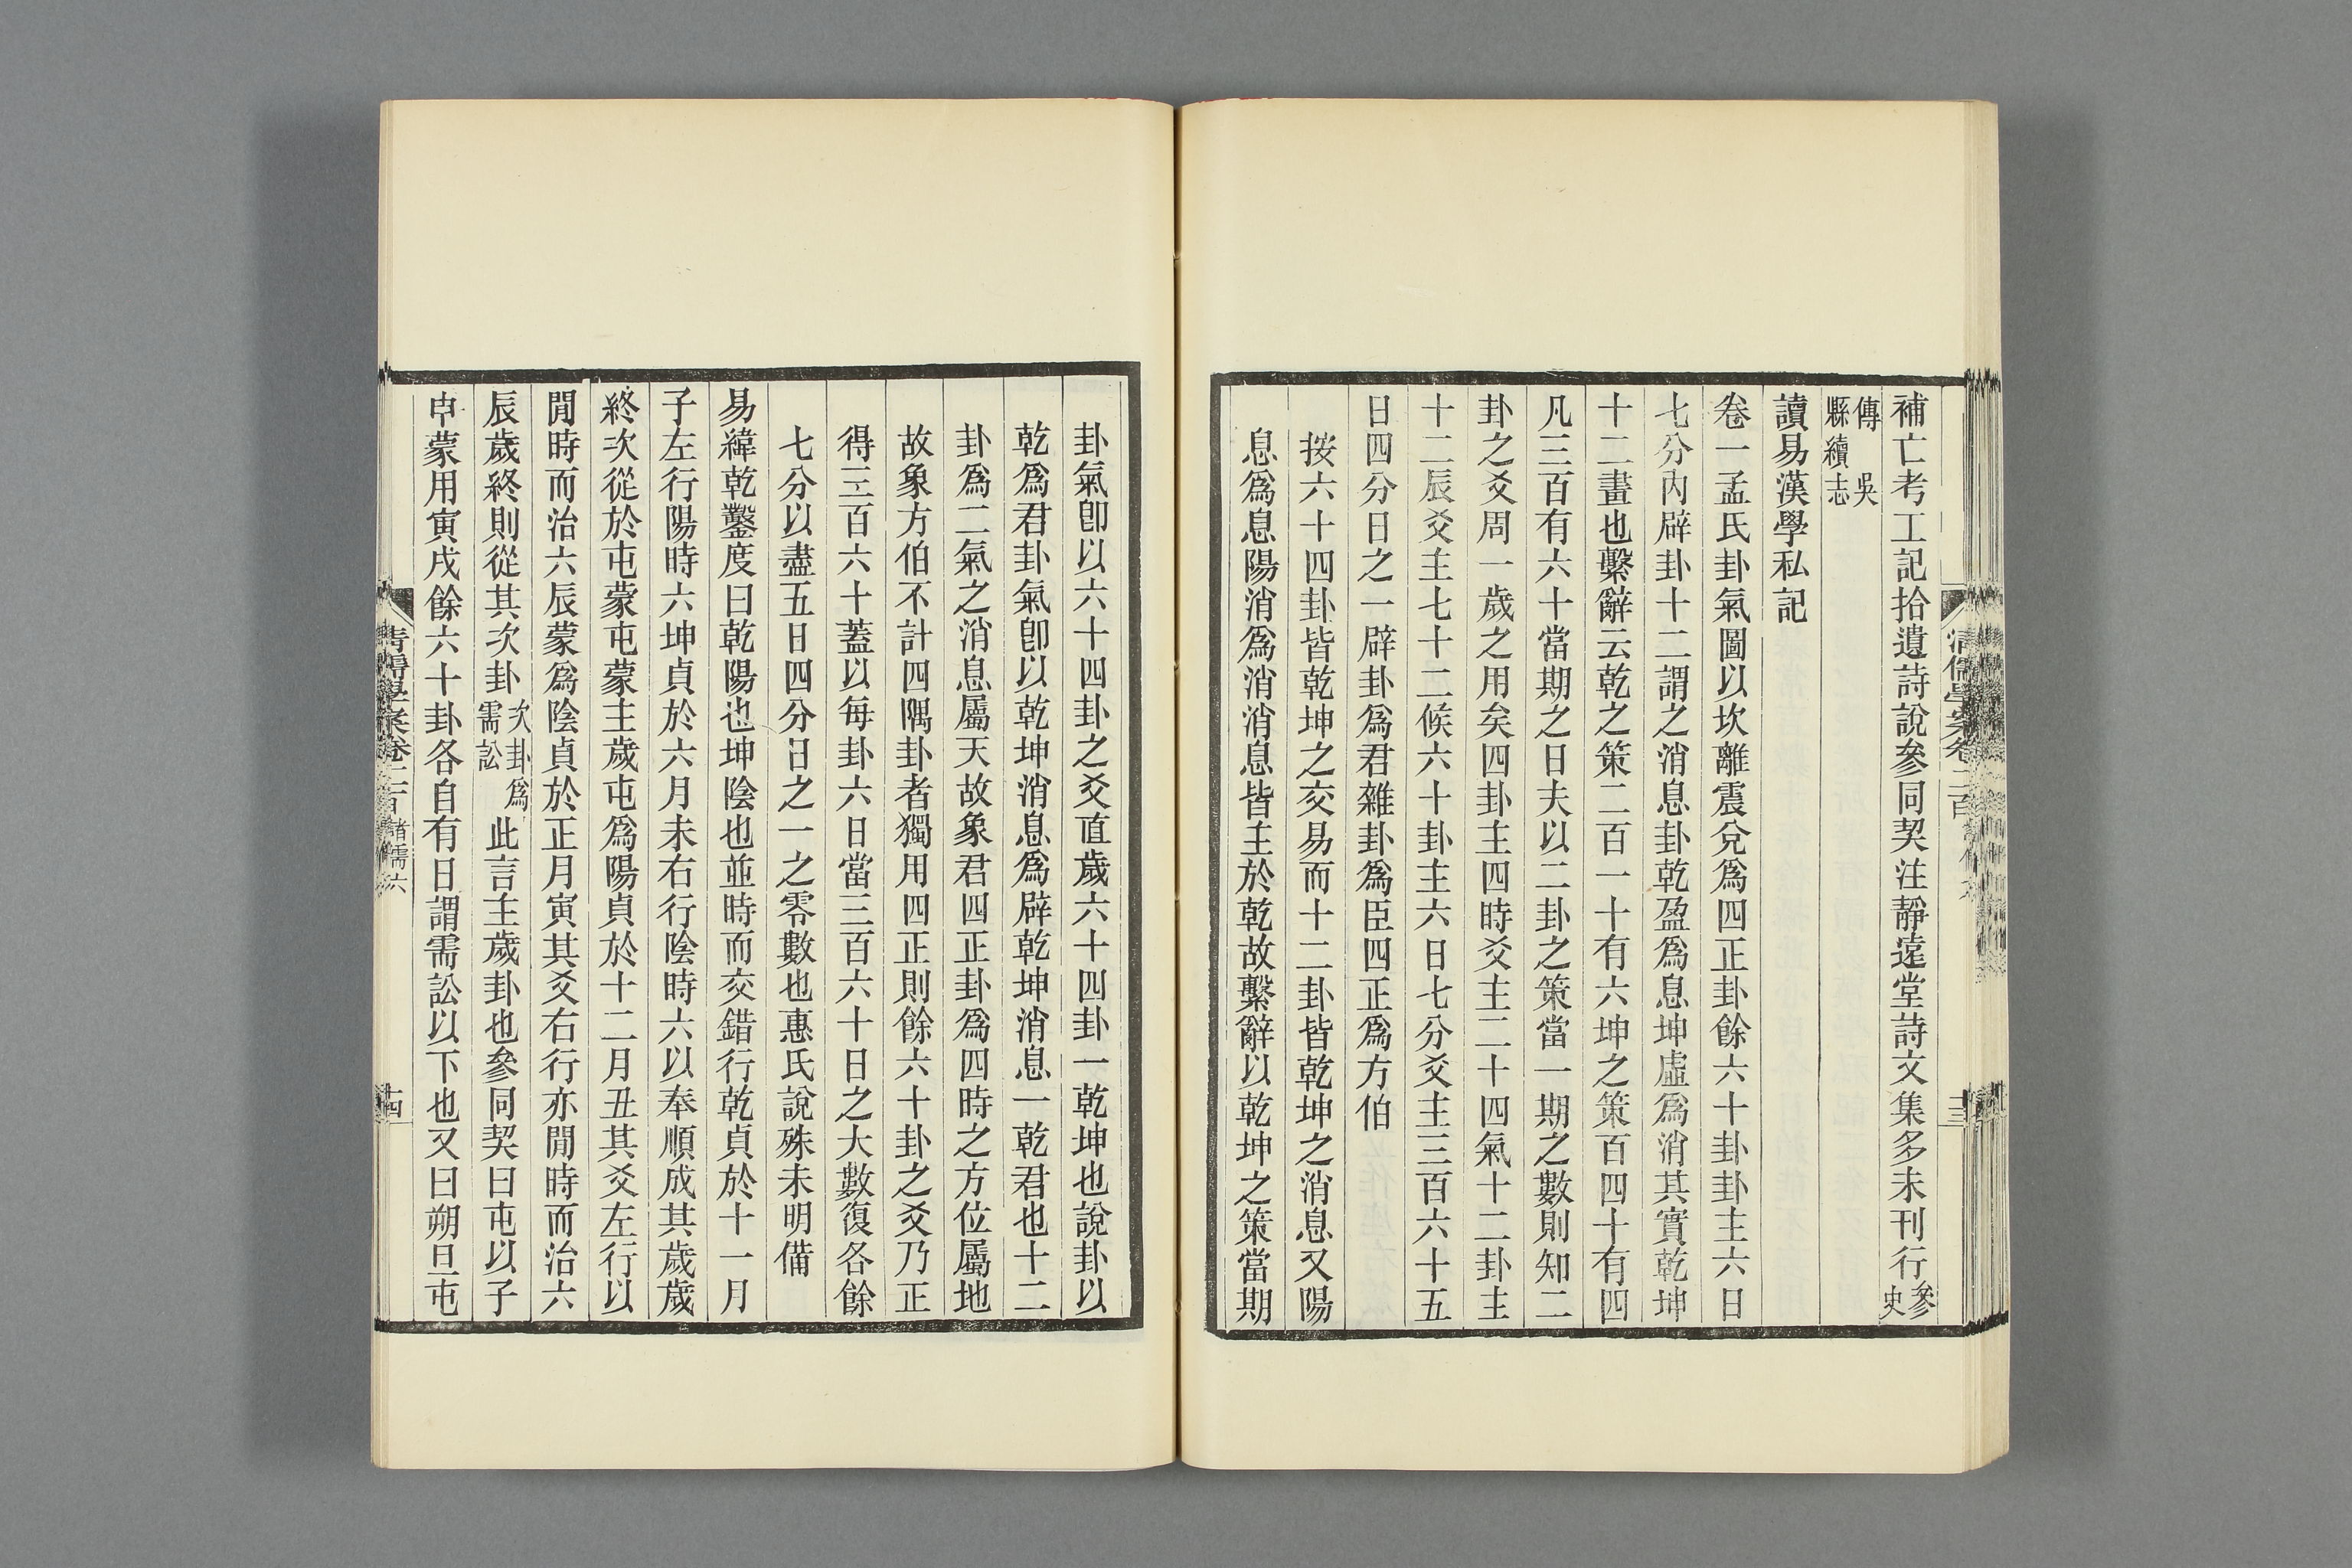 補亡考工記拾遺詩說參同契注靜遠堂詩文集多未刊行參史
傳 吳
縣續志
讀易漢學私記
卷一孟氏卦氣圖以坎離震兌爲四正卦餘六十卦卦主六日
七分內辟卦十二謂之消息卦乾盈爲息坤虛爲消其實乾坤
十二畫也繫辭云乾之策二百一十有六坤之策百四十有四
凡三百有六十當期之日夫以二卦之策當一期之數則知二
卦之爻周一歲之用矣四卦主四時爻主二十四氣十二卦主
十二辰爻主七十二候六十卦主六日七分爻主三百六十五
日四分日之一辟卦爲君雜卦爲臣四正爲方伯
按六十四卦皆乾坤之交易而十二卦皆乾坤之消息又陽
息爲息陽消爲消消息皆主於乾故繫辭以乾坤之策當期
清儒學案卷二百
十三
卦氣卽以六十四卦之爻直歲六十四卦一乾坤也說卦以
乾爲君卦氣卽以乾坤消息爲辟乾坤消息一乾君也十二
卦爲二氣之消息屬天故象君四正卦爲四時之方位屬地
故象方伯不計四隅卦者獨用四正則餘六十卦之爻乃正
得三百六十蓋以每卦六日當三百六十日之大數復各餘
七分以盡五日四分日之一之零數也惠氏說殊未明備
易緯乾鑿度曰乾陽也坤陰也並時而交錯行乾貞於十一月
子左行陽時六坤貞於六月未右行陰時六以奉順成其歲歲
終次從於屯蒙屯蒙主歲屯爲陽貞於十二月丑其爻左行以
閒時而治六辰蒙爲陰貞於正月寅其爻右行亦閒時而治六
辰歲終則從其次卦次卦爲需訟此言主歲卦也參同契曰屯以子
申蒙用寅戌餘六十卦各自有日謂需訟以下也又曰朔旦屯
清儒學案卷二百 諸儒六
十四